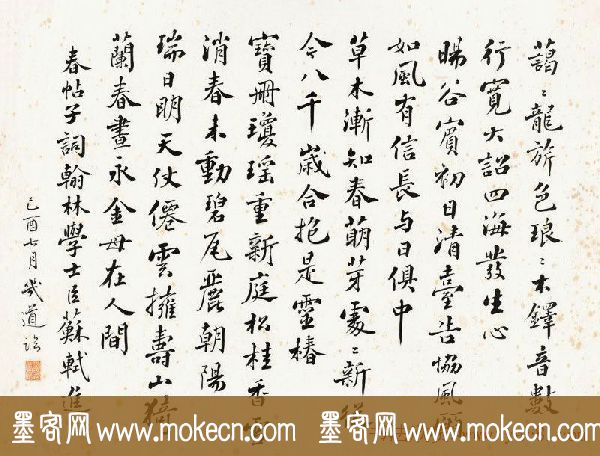 藹〻龍旂色琅〻木鐸音數
行寬大詔四海發生心
暘谷賓初日清臺告協風願
如風有信長与日俱中
草木漸知春萌芽處〻新從
今八千歲合抱是靈椿
寶冊瓊瑤重新庭松桂香雪
消春未動碧瓦麗朝陽
瑞日明天仗僊雲擁壽山猗
蘭春晝永金母在人間
春帖子詞翰林學士臣蘇軾進
己酉七月幾道临
墨客网 www.mokecn.com 墨客网 www.mokecn.com